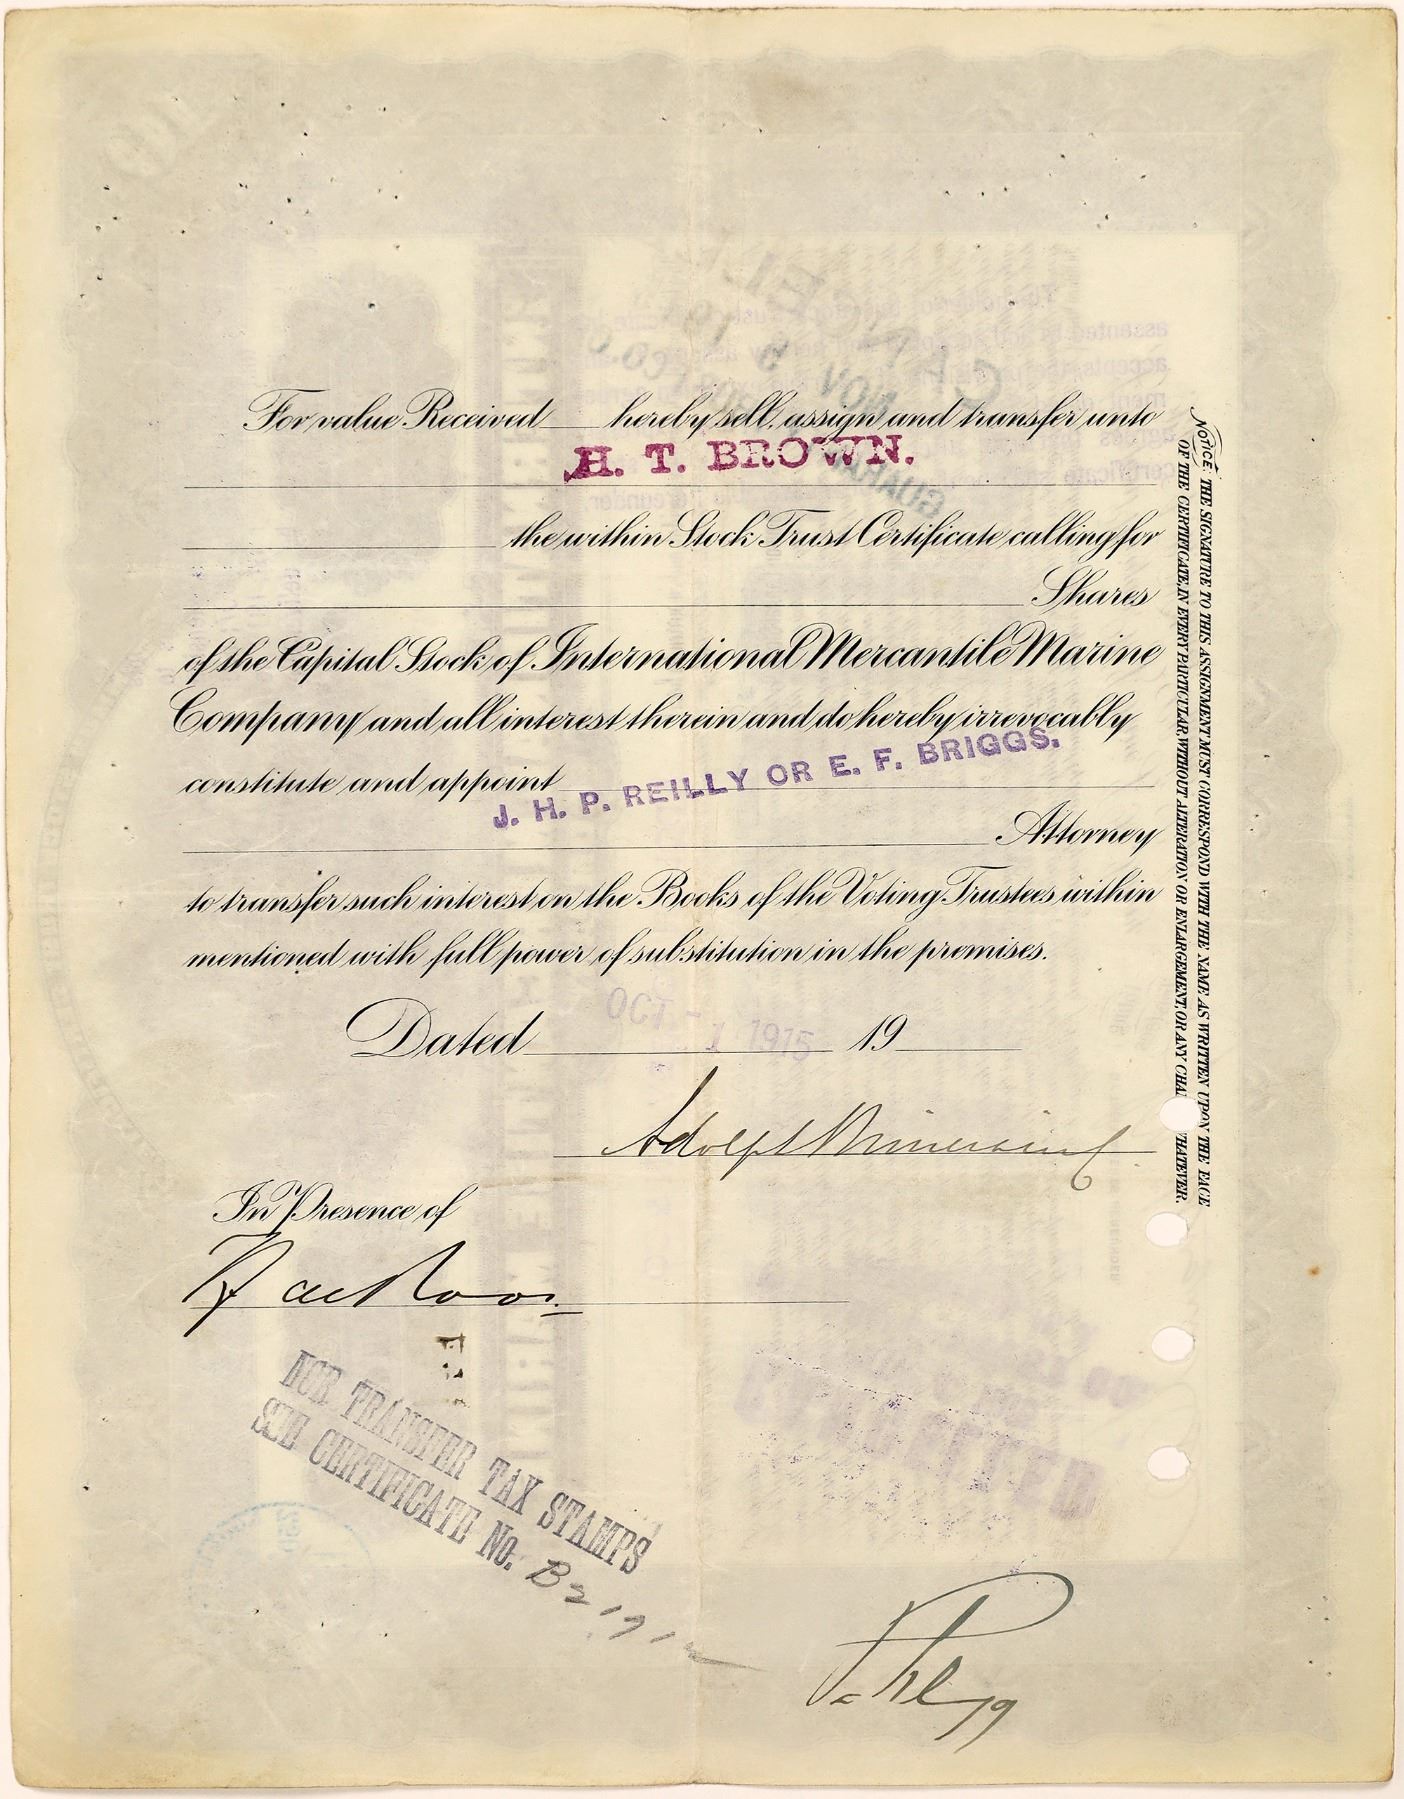 For value Received hereby sell, assign and transfer unto
H. T. BROWN.
the within Stock Trust Certificate calling for
Shares
of the Capital Stock of International Mercantile Marine
Company and all interest therein and do hereby irrevocably
constitute and appoint
J. H. P. REILLY OR E. F. BRIGGS.
Attorney
to transfer such interest on the Books of the Voting Trustees within
mentioned with full power of substitution in the premises.
Dated OCT - 1 1915 19
Adolph
In Presence of
FOR TRANSFER TAX STAMPS
SEE CERTIFICATE No.
NOTICE: THE SIGNATURE TO THIS ASSIGNMENT MUST CORRESPOND WITH THE NAME AS WRITTEN UPON THE FACE
OF THE CERTIFICATE, IN EVERY PARTICULAR, WITHOUT ALTERATION OR ENLARGEMENT, OR ANY CHA HATEVER.